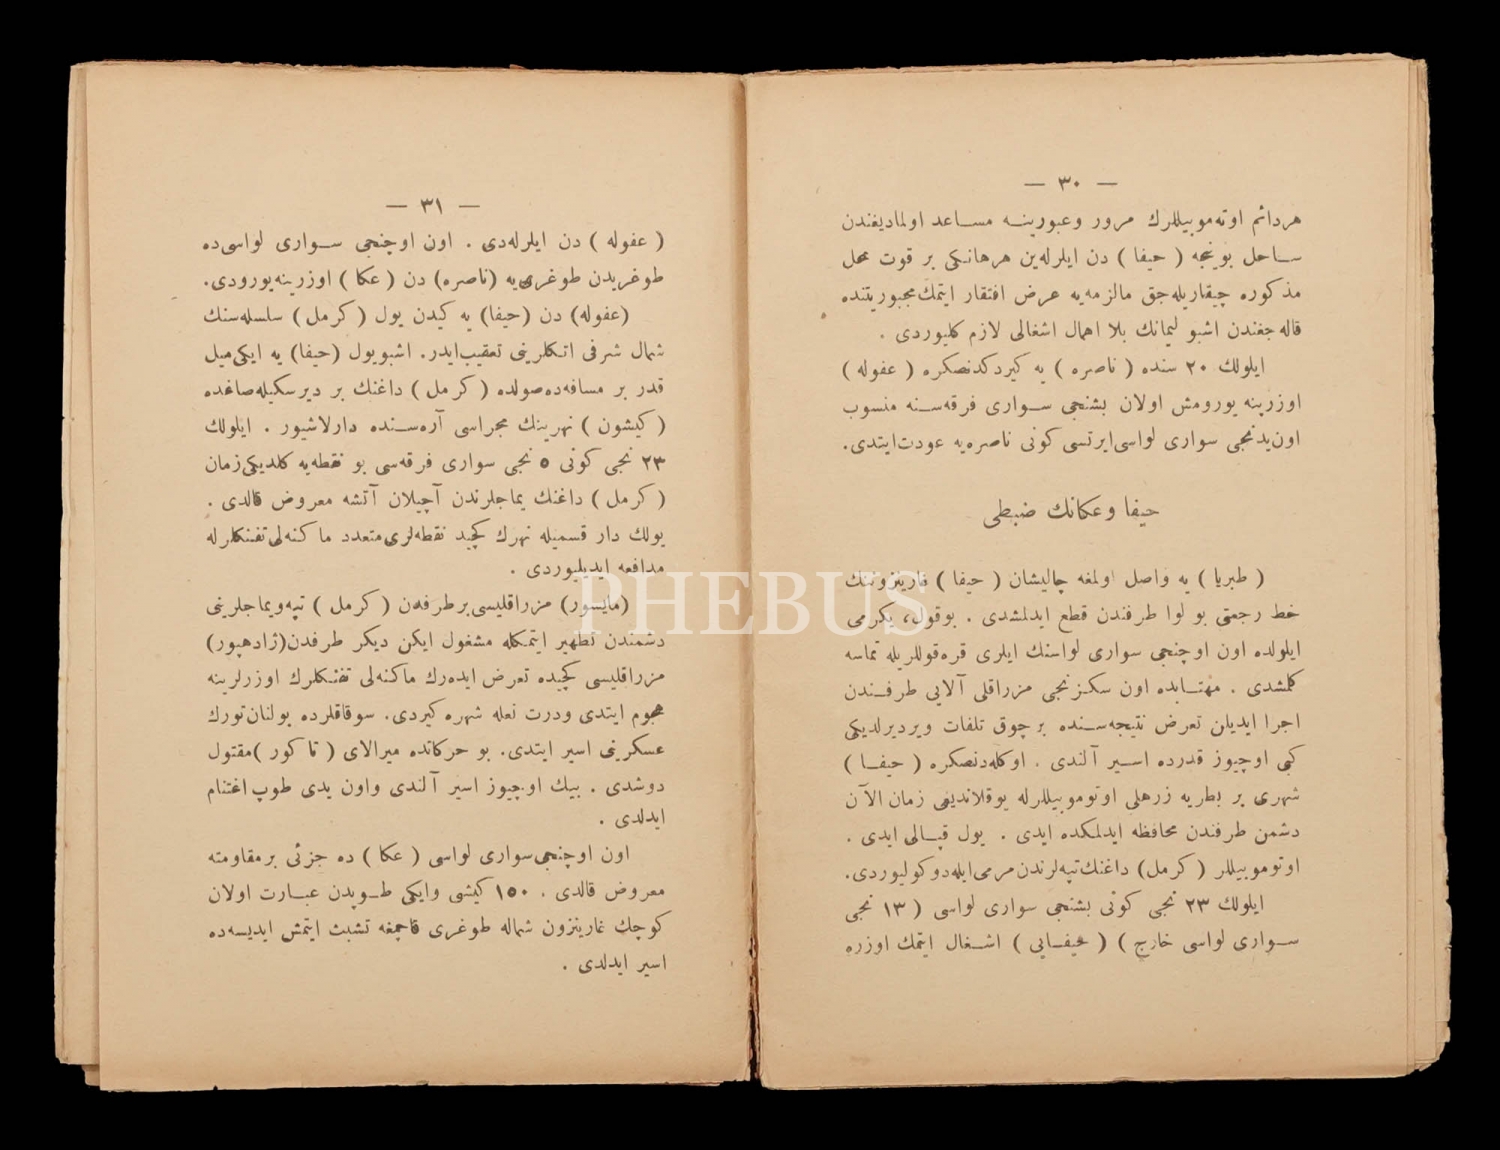 — ٣٠ —
هردائم اوتەموبیللرك مرور وعبورینـه مساعد اولمادیغندن
ساحل بوینجه ( حیفا ) دن ایلرلەین هرهانکی بر قوت محل
مذکوره چیقاریله‌جق مالزمەیه عرض افتقار ایتمك مجبوریتنده
قالەجغندن اشبو لیمانك بلا اهمال اشغالی لازم کلیوردی .
ایلولك ٢٠ سنده ( ناصره ) یه کیردکدنصکره ( عفوله )
اوزرینه یورومش اولان بشنجی سواری فرقەسنه منسوب
اون‌یدنجی سواری لواسی‌ایرتسی کونی ناصرەیه عودت‌ایتدی.
حیفا وعکانك ضبطی
( طبریا ) یه واصل اولمغه چالیشان ( حیفا ) غارنیزوننك
خط رجعتی بو لوا طرفندن قطع ایدلمشدی . بوقول، یکرمی
ایلولده اون اوچنجی سواری لواسنك ایلری قره‌قوللریله تماسه
کلمشدی . مهتابده اون سکزنجی مزراقلی آلایی طرفندن
اجرا ایدیلن تعرض نتیجەسنده برچوق تلفات ویردیرلدیکی
کبی اوچیوز قدرده اسیر آلندی . اوکله‌دنصکره ( حیفا )
شهری بر بطریه زرهلی اوتوموبیللرله یوقلاندیغی زمان الآن
دشمن طرفندن محافظه ایدلمکده ایدی . یول قپالی ایدی .
اوتوموبیللر ( کرمل ) داغنك تپەلرندن مرمی‌ایله‌دوکولیوردی.
ایلولك ٢٣ نجی کونی بشنجی سواری لواسی ( ١٣ نجی
سواری لواسی خارج ) ( حیفایی ) اشغال ایتمك اوزره
— ٣١ —
( عفوله ) دن ایلرلەدی . اون اوچنجی سواری لواسی‌ده
طوغریدن طوغری‌یه (ناصره) دن ( عکا ) اوزرینه‌یورودی.
(عفوله) دن (حیفا) یه کیدن یول ( کرمل ) سلسلەسنك
شمال شرقی اتکلرینی تعقیب‌ایدر. اشبویول (حیفا) یه ایکی‌میل
قدر بر مسافەده‌صولده ( کرمل ) داغنك بر دیرسکیله‌صاغده
( کیشون ) نهرینك مجراسی آرەسنده دارلاشیور . ایلولك
٢٣ نجی کونی ٥ نجی سواری فرقەسی بو نقطەیه کلدیکی‌زمان
( کرمل ) داغنك یماجلرندن آچیلان آتشه معروض قالدی .
یولك دار قسمیله نهرك کچید نقطەلری‌متعدد ماکنەلی‌تفنکلرله
مدافعه ایدیلیوردی .
(مایسور) مزراقلیسی‌برطرفەن ( کرمل ) تپەویماجلرینی
دشمندن تطهیر ایتمکله مشغول ایکن دیکر طرفدن(ژادهپور)
مزراقلیسی کچیده تعرض ایدەرك ماکنەلی تفنکلرك اوزرلرینه
هجوم ایتدی ودرت نعله شهره کیردی. سوقاقلرده بولنان‌تورك
عسکرینی اسیر ایتدی. بو حرکاتده میرالای ( تاکور )مقتول
دوشدی . بیك اوچیوز اسیر آلندی واون یدی طوپ اغتنام
ایدلدی .
اون اوچنجی‌سواری لواسی ( عکا ) ده جزئی برمقاومته
معروض قالدی . ١٥٠ کیشی وایکی طوپدن عبارت اولان
کوچك غارنیزون شماله طوغری قاچمغه تشبث ایتمش ایدیسەده
اسیر ایدلدی .
PHEBUS